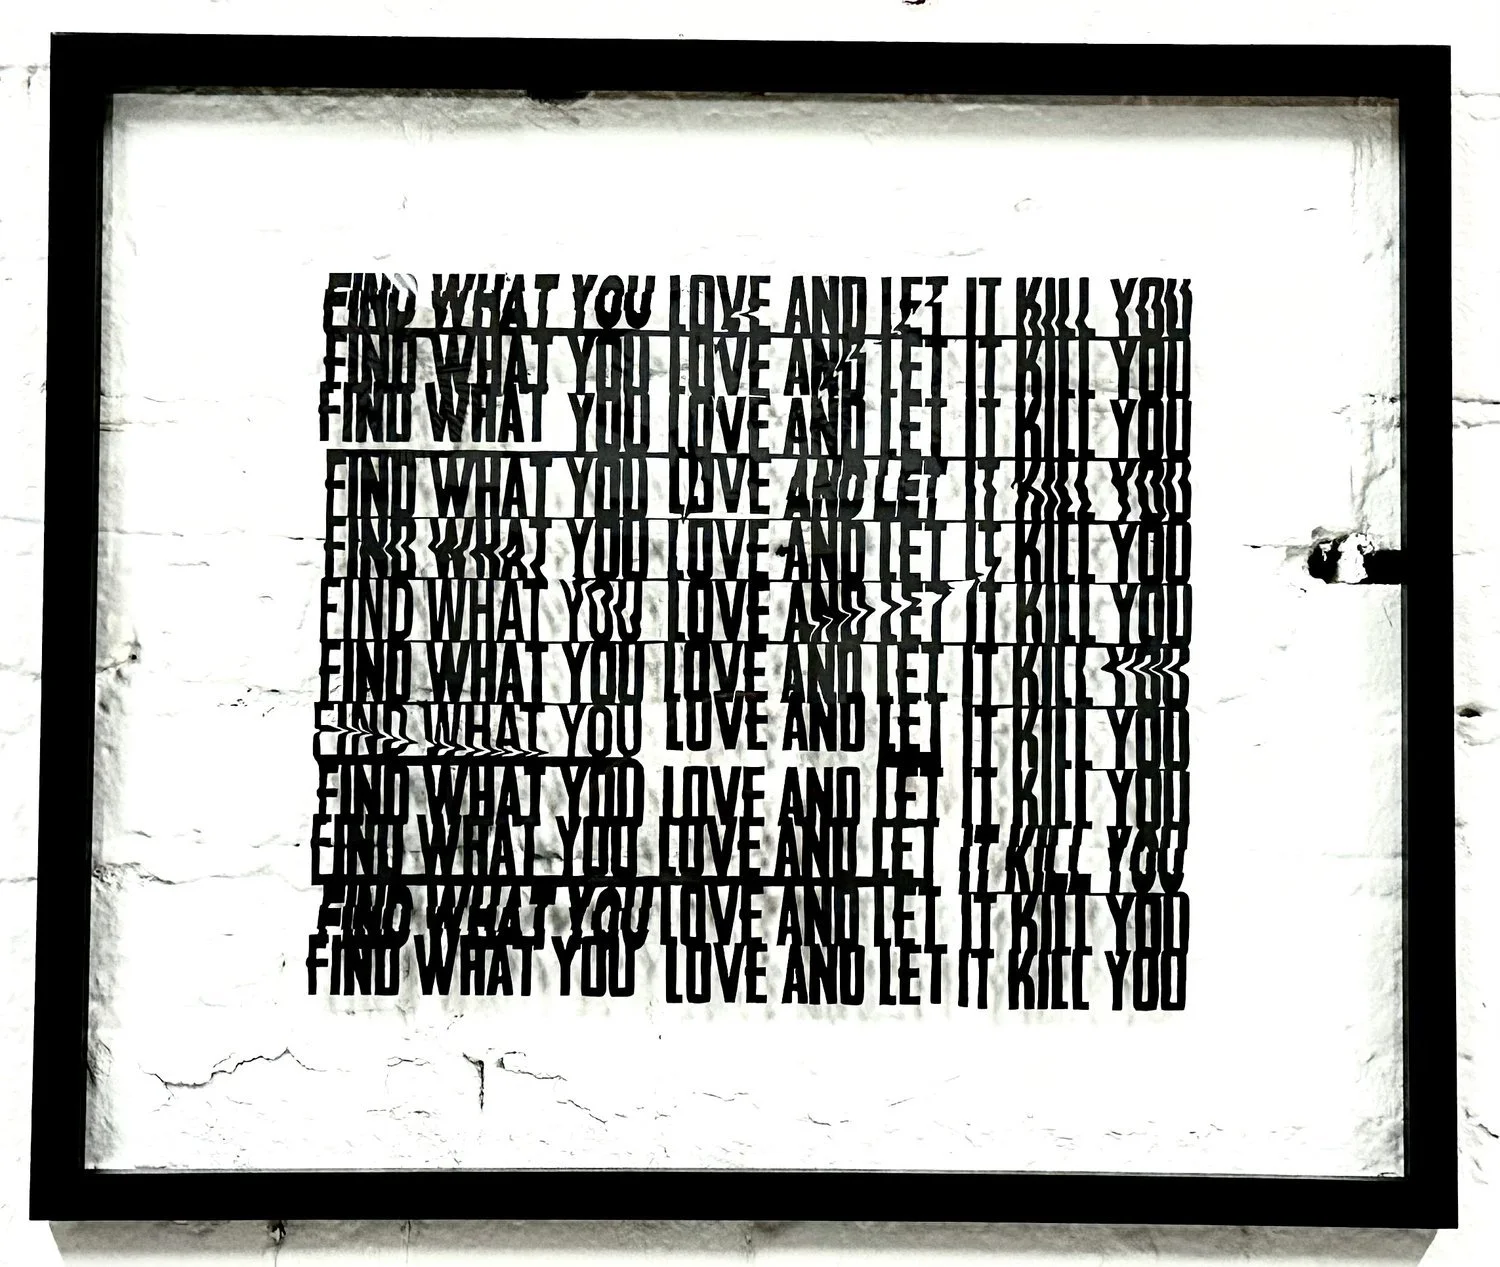 FIND WHAT YOU LOVE AND LET IT KILL YOU
FIND WHAT YOU LOVE AND LET IT KILL YOU
FIND WHAT YOU LOVE AND LET IT KILL YOU
FIND WHAT YOU LOVE AND LET IT KILL YOU
FIND WHAT YOU LOVE AND LET IT KILL YOU
FIND WHAT YOU LOVE AND LET IT KILL YOU
FIND WHAT YOU LOVE AND LET IT KILL YOU
FIND WHAT YOU LOVE AND LET IT KILL YOU
FIND WHAT YOU LOVE AND LET IT KILL YOU
FIND WHAT YOU LOVE AND LET IT KILL YOU
FIND WHAT YOU LOVE AND LET IT KILL YOU
FIND WHAT YOU LOVE AND LET IT KILL YOU